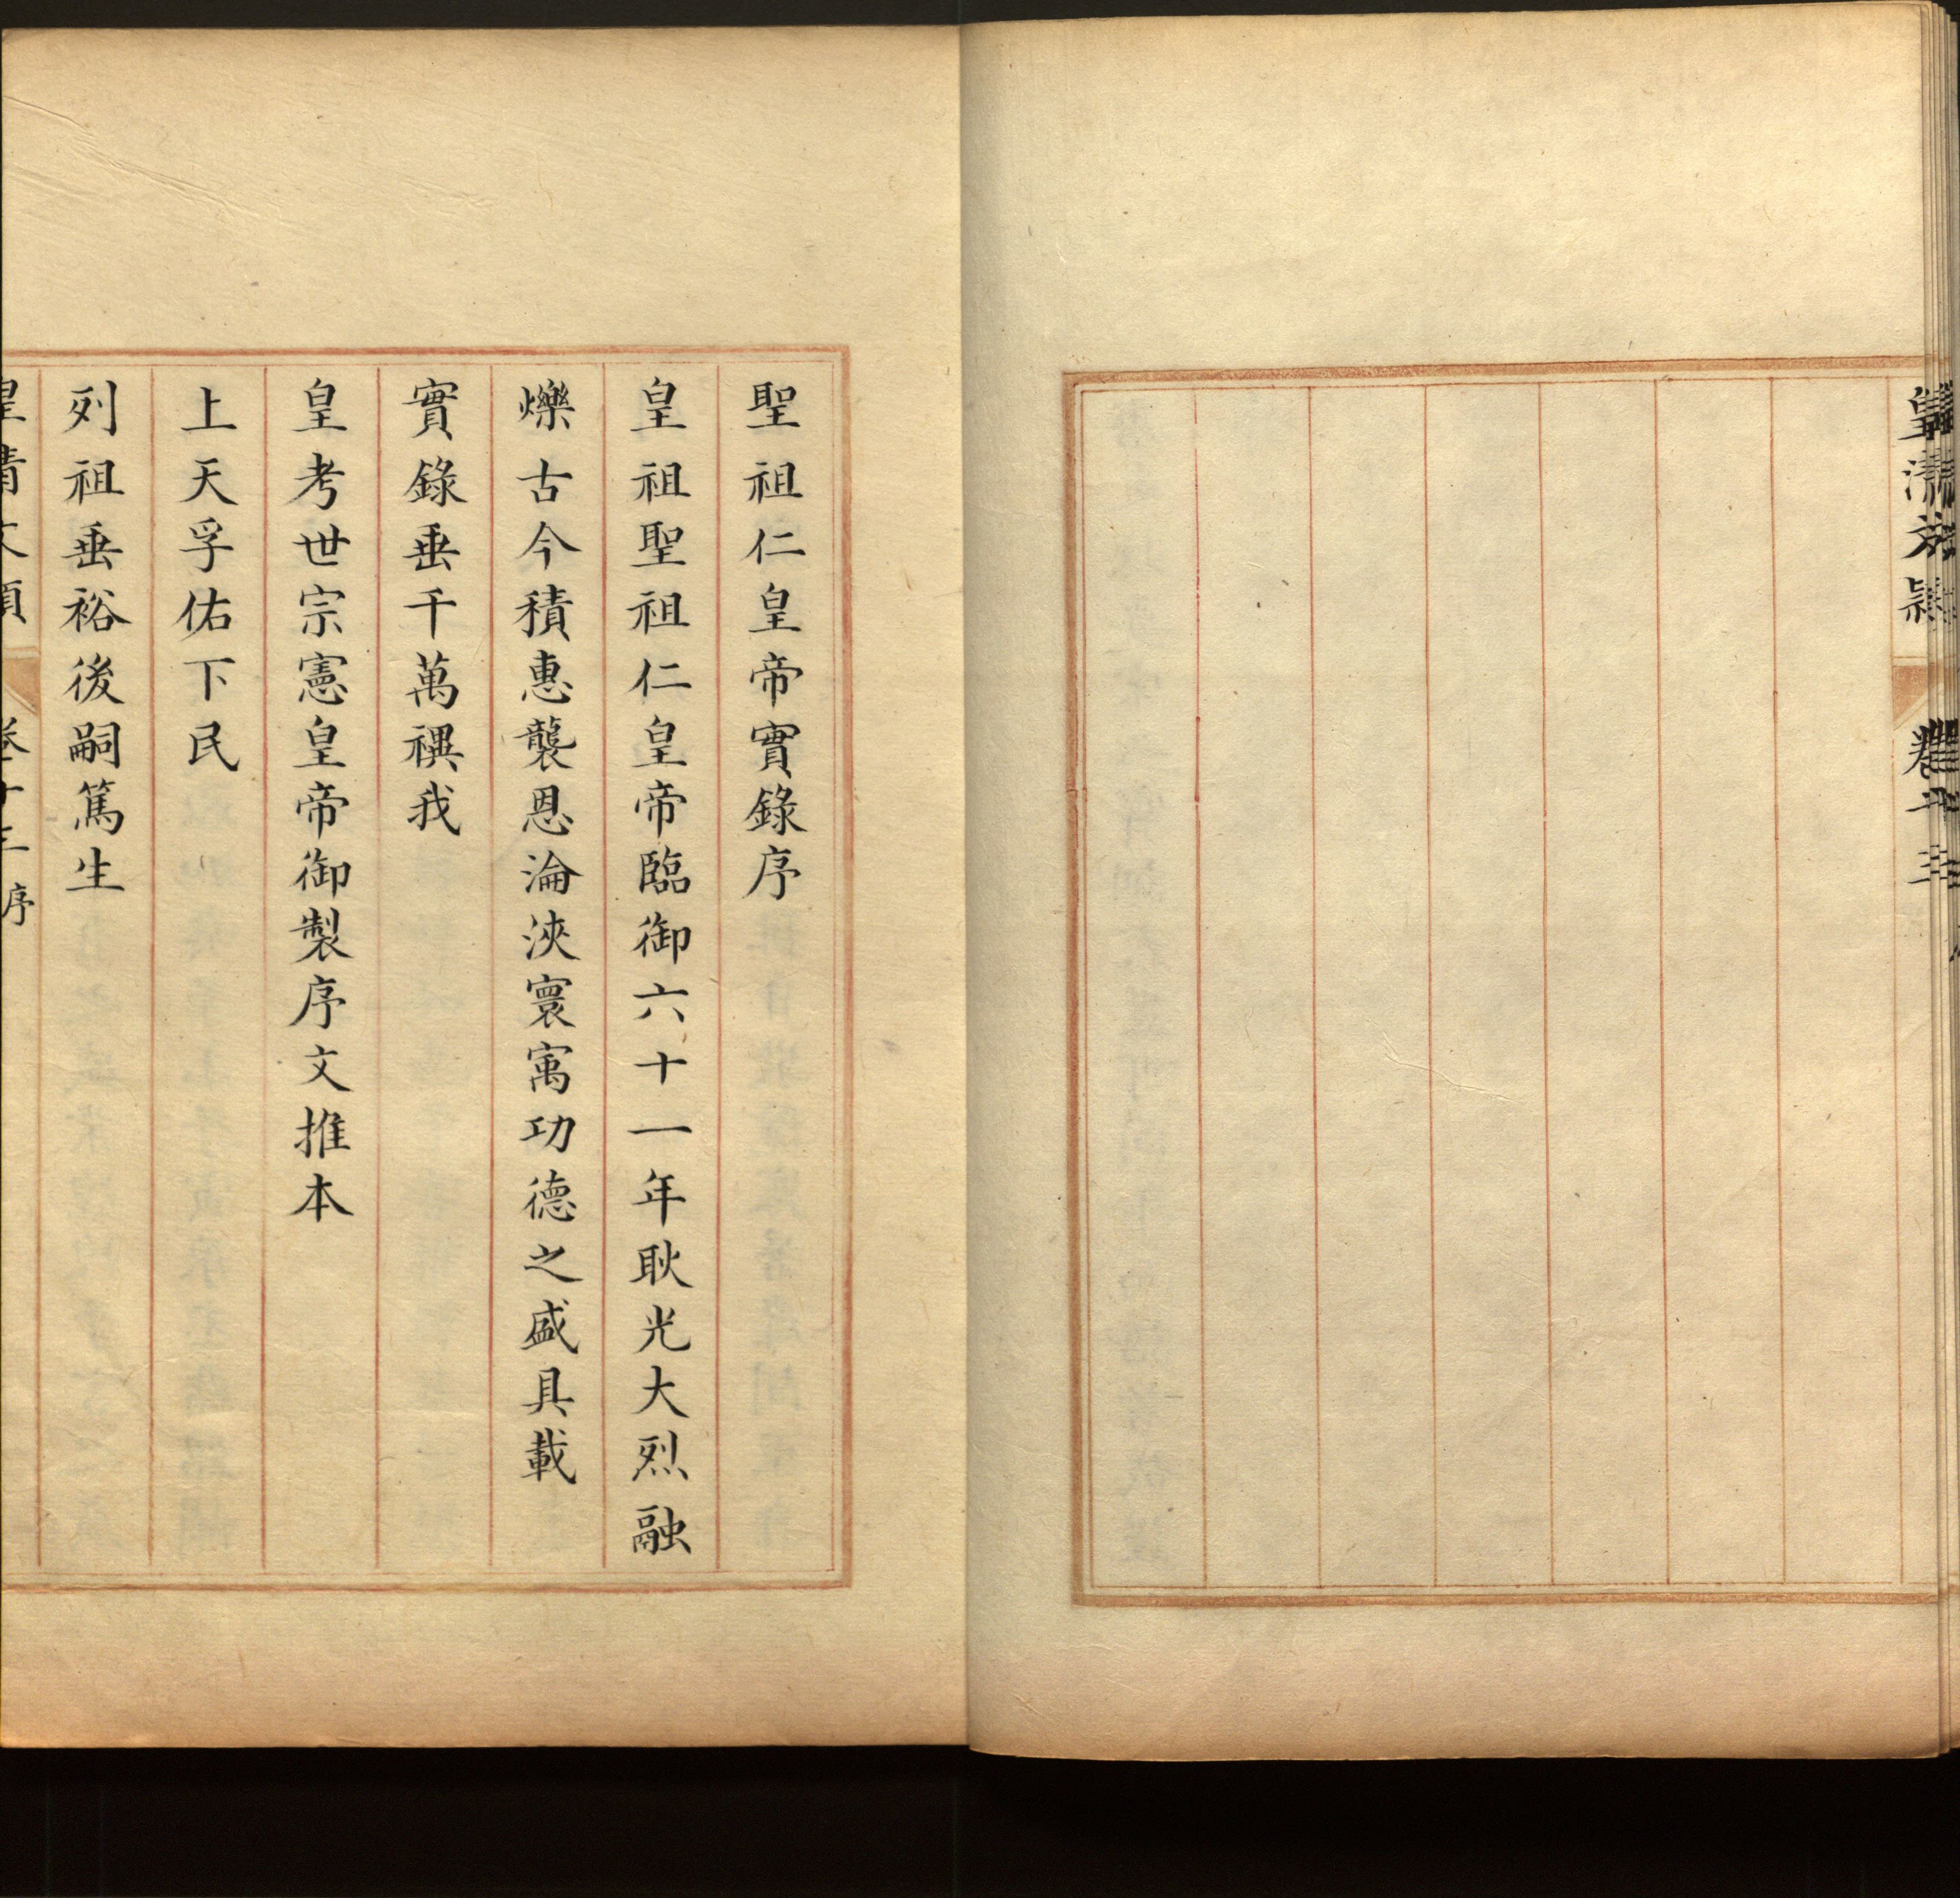 皇清文穎
卷十三
聖祖仁皇帝實錄序
皇祖聖祖仁皇帝臨御六十一年耿光大烈融
爍古今積惠襲恩淪浹寰寓功德之盛具載
實錄垂千萬禩我
皇考世宗憲皇帝御製序文推本
上天孚佑下民
列祖垂裕後嗣篤生
皇清文穎 卷十三 序